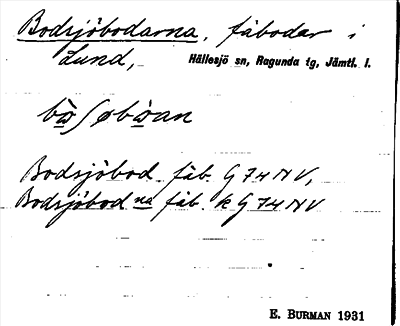 Bodsjöbodarna, fäbodar i
Lund, Hällesjö sn, Ragunda tg, Jämtl. l.
Bodsjöbod fäb. G 74 NV,
Bodsjöbod na fäb. k G 74 NV
E. BURMAN 1931